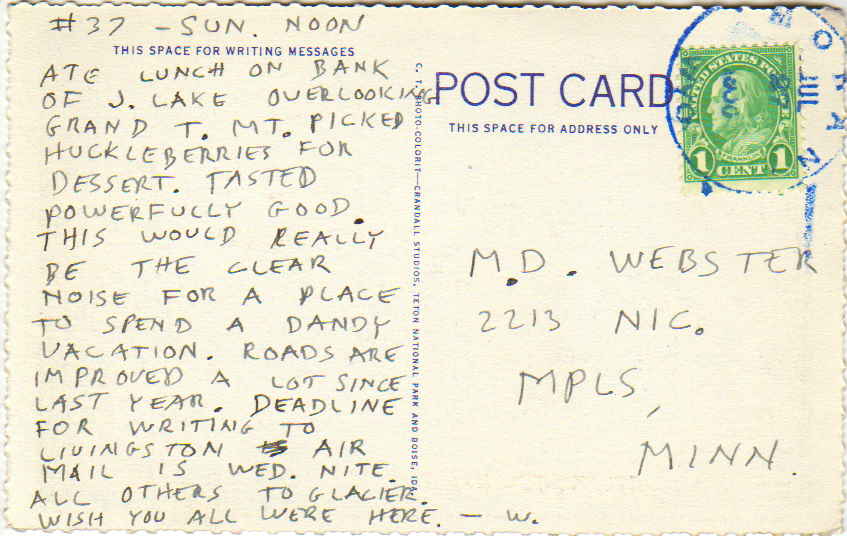 #37 - SUN. NOON
THIS SPACE FOR WRITING MESSAGES
ATE LUNCH ON BANK
OF J. LAKE OVERLOOKING
GRAND T. MT. PICKED
HUCKLEBERRIES FOR
DESSERT. TASTED
POWERFULLY GOOD.
THIS WOULD REALLY
BE THE CLEAR
NOISE FOR A PLACE
TO SPEND A DANDY
VACATION. ROADS ARE
IMPROVED A LOT SINCE
LAST YEAR. DEADLINE
FOR WRITING TO
LIVINGSTON AIR
MAIL IS WED. NITE.
ALL OTHERS TO GLACIER.
WISH YOU ALL WERE HERE. - W.
C. T. PHOTO-COLORIT—CRANDALL STUDIOS, TETON NATIONAL PARK AND BOISE, IDA.
POST CARD
THIS SPACE FOR ADDRESS ONLY
UNITED STATES POSTAGE
FRANKLIN
1 CENT 1
MORAN
JUL
27
WYO.
M.D. WEBSTER
2213 NIC.
MPLS,
MINN.